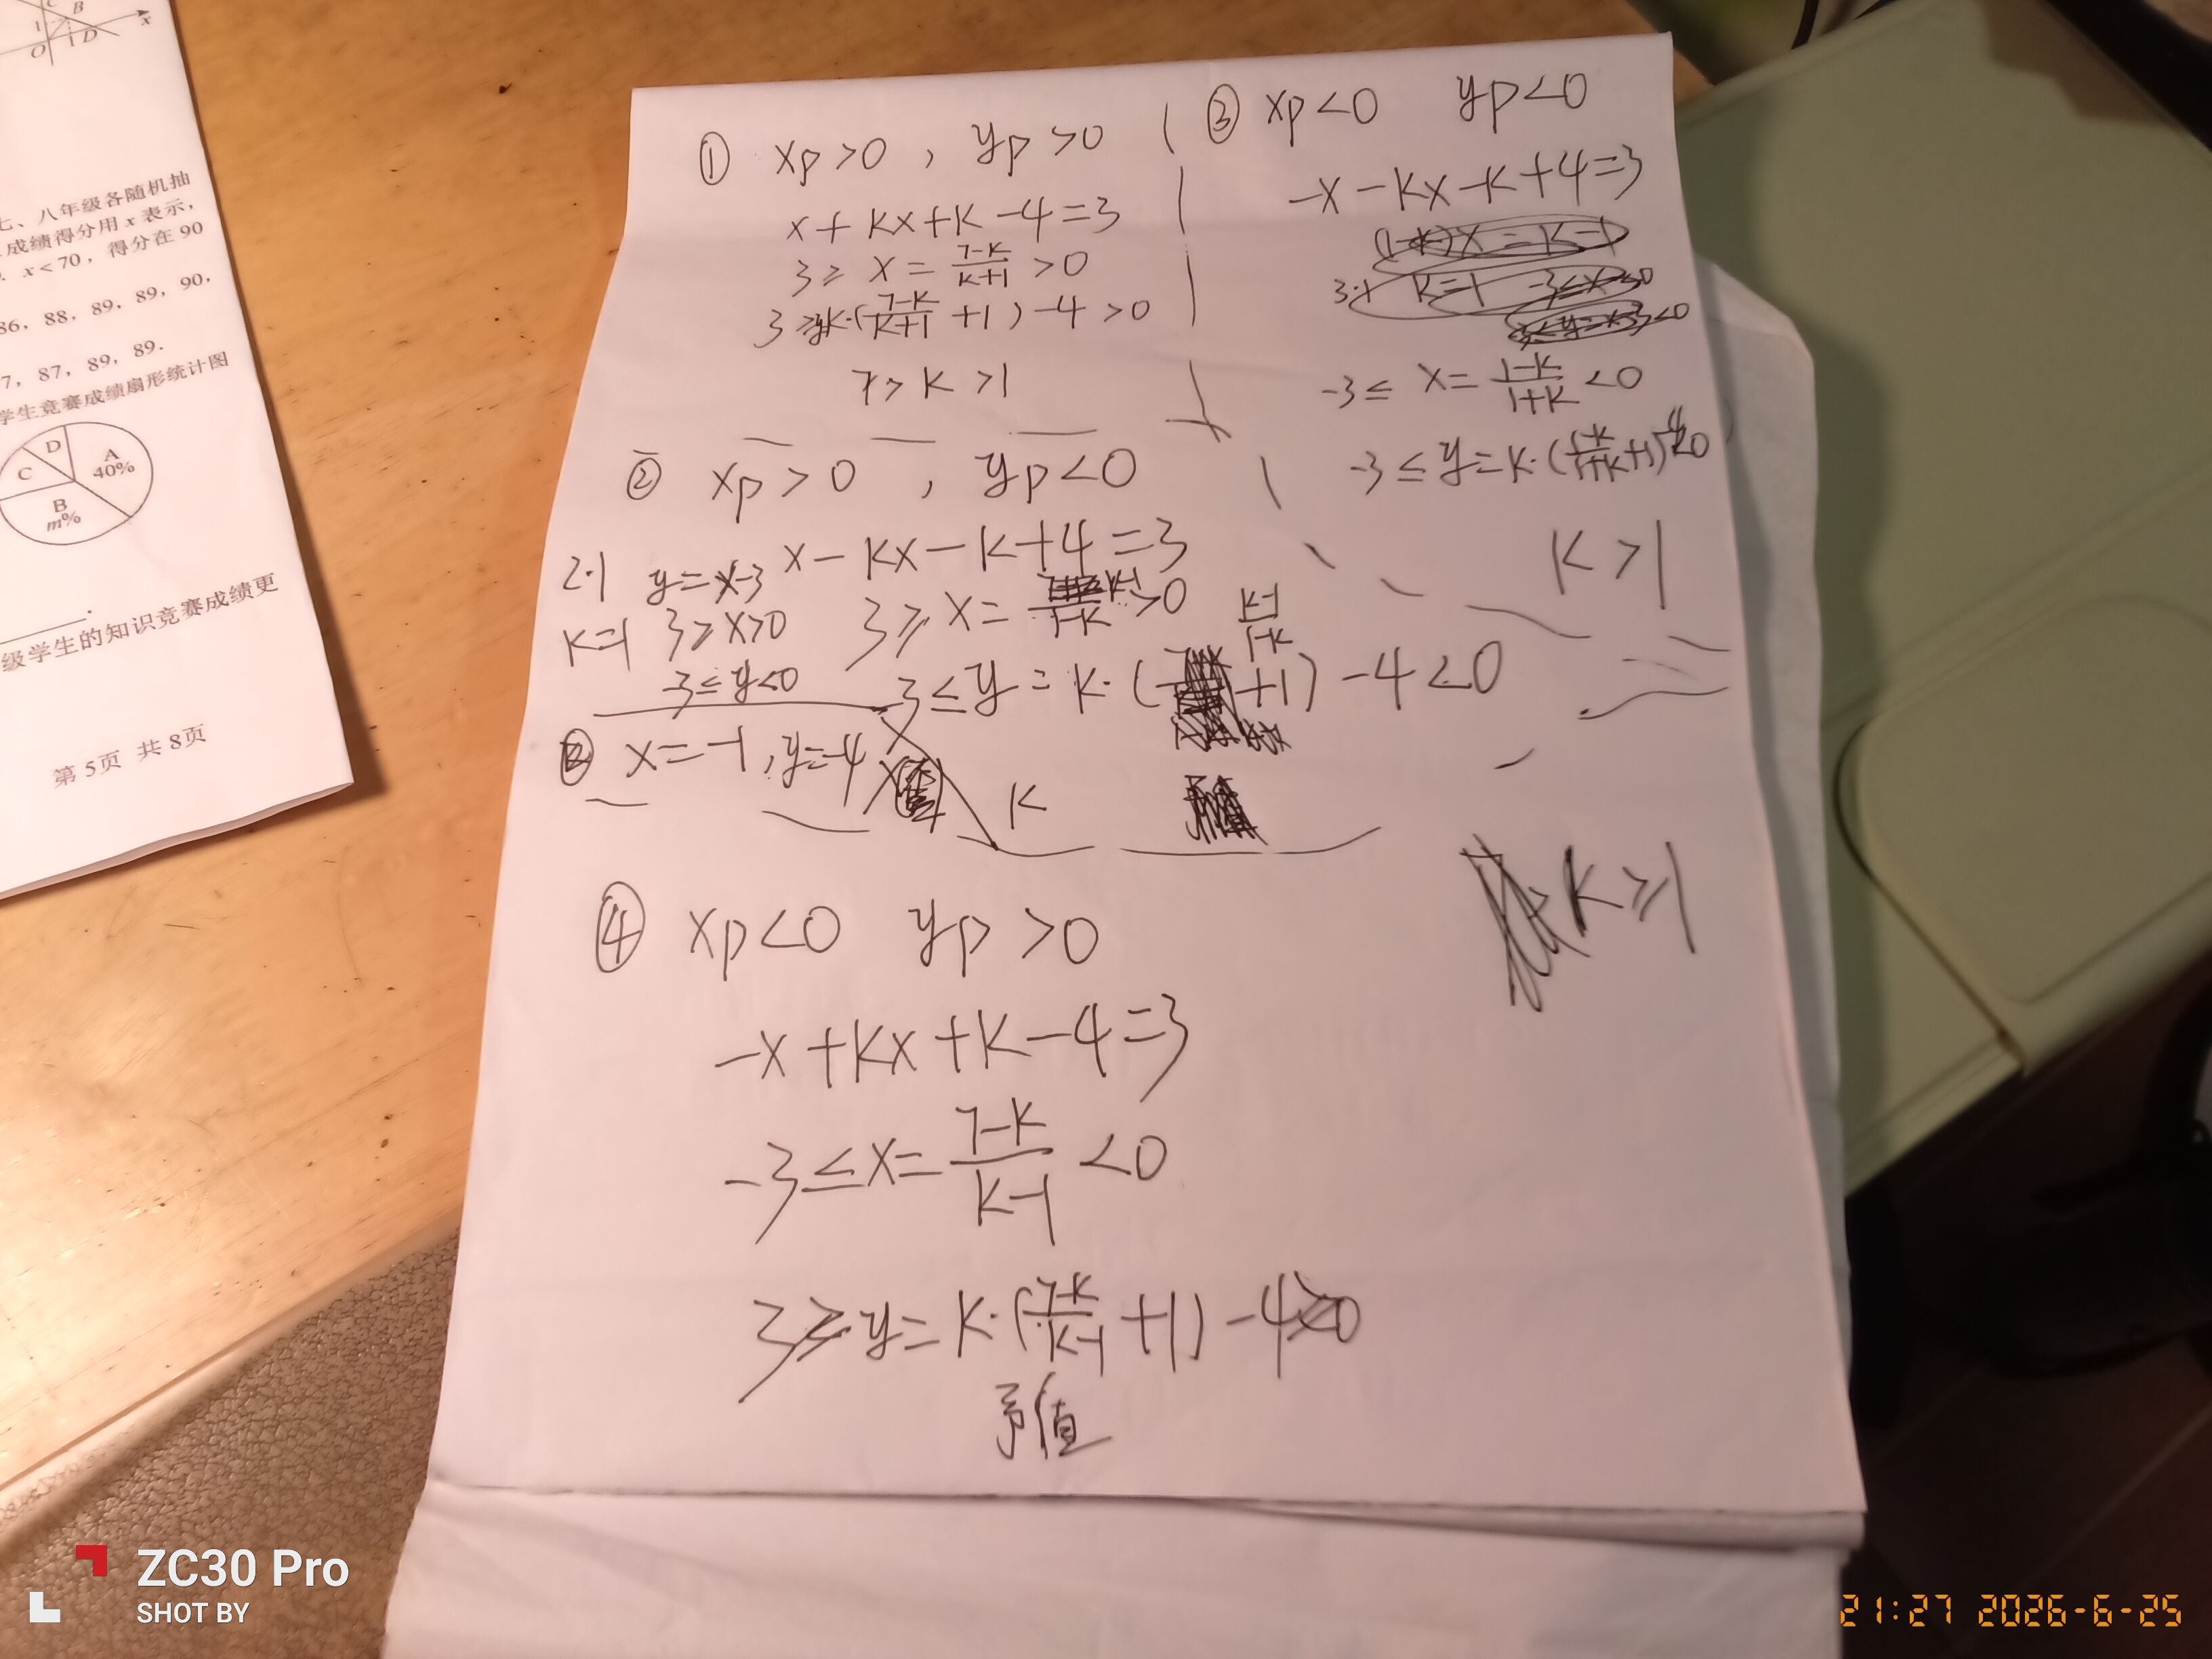 C
B
1
x
O
1
D
七、八年级各随机抽
成绩得分用 x 表示,
x<70, 得分在 90
86, 88, 89, 89, 90,
7, 87, 89, 89.
学生竞赛成绩扇形统计图
D
A
40%
C
B
m%
级学生的知识竞赛成绩更
第 5 页 共 8 页
① xp>0 , yp>0
x+kx+k-4=3
3≥ x = 7-k/k+1 >0
3≥y=k·(7-k/k+1 +1)-4>0
7>k>1
② xp>0 , yp<0
x-kx-k+4=3
2·1 y=x-3
k=1 3≥x>0
-3≤y<0
3≥x= k-1/1-k >0
-3≤y=k·( k-1/1-k +1)-4<0
x=-1,y=-4
k
③ xp<0 yp<0
-x-kx-k+4=3
3·1 k=1 -3≤x<0
-3≤ x= 1-k/1+k <0
-3≤y=k·(1-k/1+k+1)-4<0
k>1
k≥1
④ xp<0 yp>0
-x+kx+k-4=3
-3≤x= 7-k/k-1 <0
3≥y=k·(7-k/k-1 +1)-4>0
ZC30 Pro
SHOT BY
21:27 2026-6-25